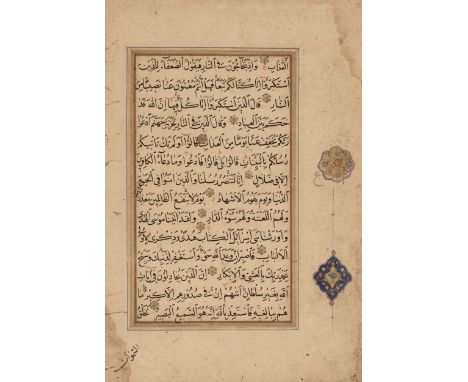 العذاب وإذ يتحاجون في النار فيقول الضعفاء للذين
استكبروا إنا كنا لكم تبعا فهل أنتم مغنون عنا نصيبا من
النار قال الذين استكبروا إنا كل فيها إن الله قد
حكم بين العباد وقال الذين في النار لخزنة جهنم ادعوا
ربكم يخفف عنا يوما من العذاب قالوا أولم تك تأتيكم
رسلكم بالبينات قالوا بلى قالوا فادعوا وما دعاء الكافرين
إلا في ضلال إنا لننصر رسلنا والذين آمنوا في الحيوة
الدنيا ويوم يقوم الأشهاد يوم لا ينفع الظالمين معذرتهم
ولهم اللعنة ولهم سوء الدار ولقد آتينا موسى الهدى
وأورثنا بني إسرائيل الكتاب هدى وذكرى لأولي
الألباب فاصبر إن وعد الله حق واستغفر لذنبك وسبح
بحمد ربك بالعشي والإبكار إن الذين يجادلون في آيات
الله بغير سلطان أتاهم إن في صدورهم إلا كبر ما
هم ببالغيه فاستعذ بالله إنه هو السميع البصير لخلق
السموات